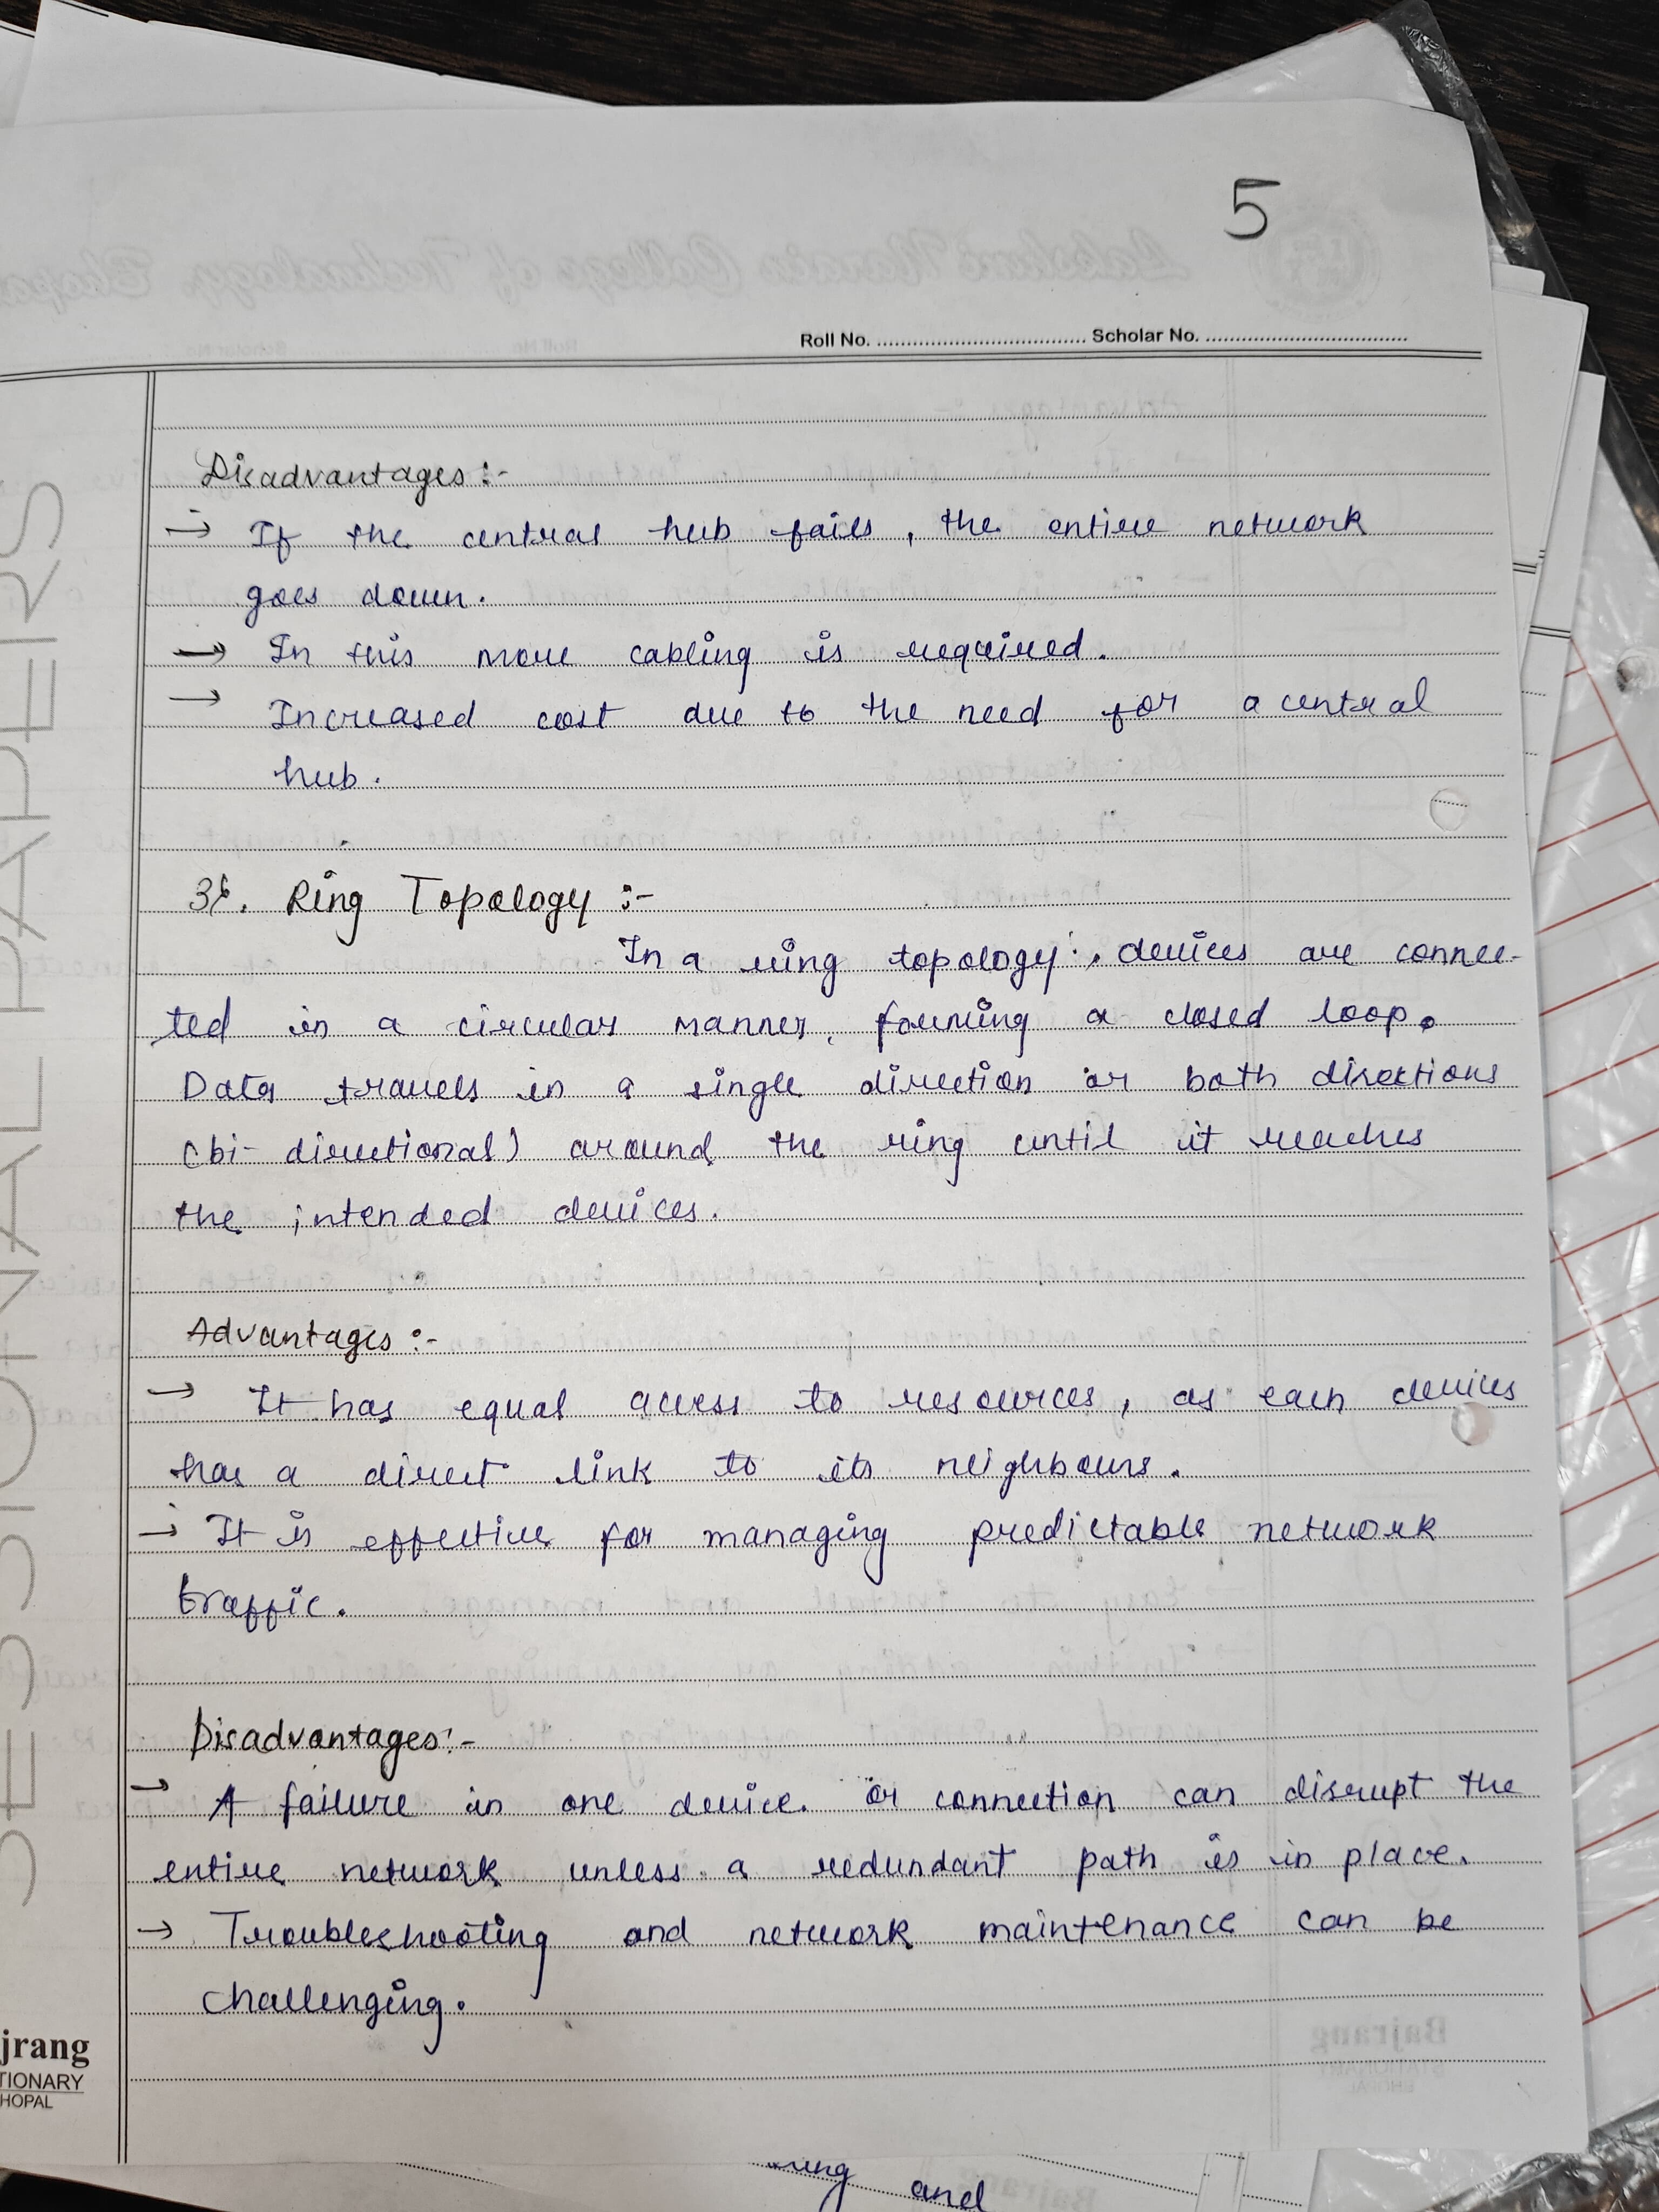 5
Roll No. .................................... Scholar No. ....................................
Disadvantages :-
→ If the central hub fails, the entire network
goes down.
→ In this more cabling is required.
→ Increased cost due to the need for a central
hub.
3. Ring Topology :-
In a ring topology, devices are connec-
ted in a circular manner, forming a closed loop.
Data travels in a single direction or both directions
(bi-directional) around the ring until it reaches
the intended devices.
Advantages :-
→ It has equal access to resources, as each devices
has a direct link to its neighbours.
→ It is effective for managing predictable network
traffic.
Disadvantages :-
→ A failure in one device or connection can disrupt the
entire network unless a redundant path is in place.
→ Troubleshooting and network maintenance can be
challenging.
jrang
TIONARY
HOPAL
SESSIONAL PAPERS
and